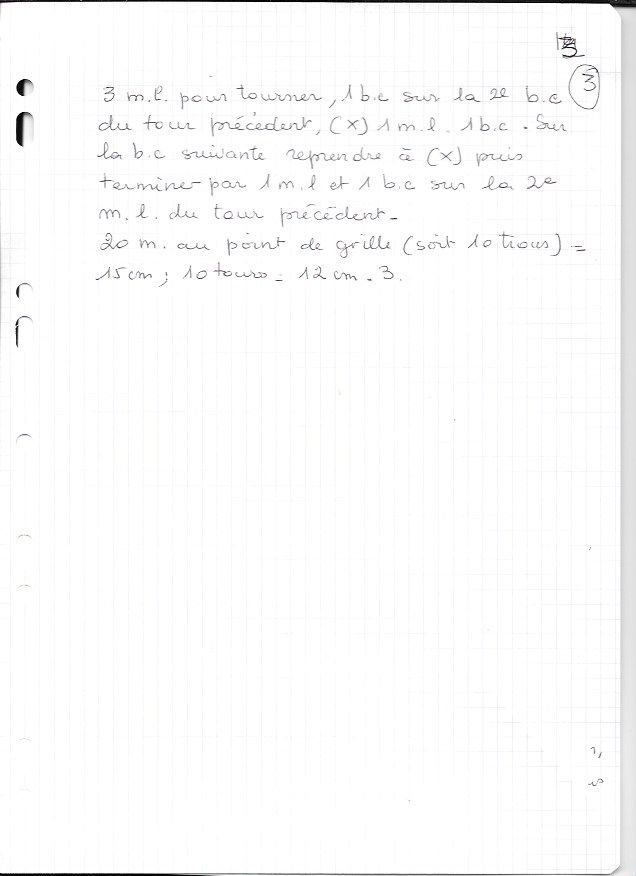 3
3 m.l. pour tourner, 1 b.c sur la 2e b.c
du tour précédent, (x) 1 m.l. 1 b.c. Sur
la b.c suivante reprendre à (x) puis
terminer par 1 m.l et 1 b.c sur la 2e
m.l. du tour précédent.
20 m. au point de grille (soit 10 trous) =
15 cm ; 10 tours = 12 cm. 3.